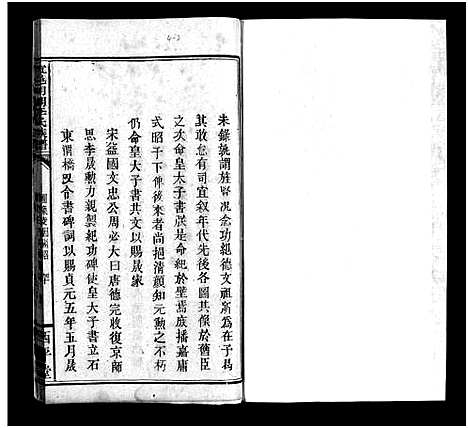 未錄孰謂旌賢况念功紀德文祖所為在予曷
其敢怠有司宜叙年代先後各圖其像於舊臣
之次命皇太子書朕是命紀於壁焉庶播嘉庸
式昭于下俾後來者尚挹清顏知元勲之不朽
仍命皇太子書其文以賜晟家
宋益國文忠公周必大曰唐德宗收復京師
思李晟勲力親製紀功碑使皇太子書立石
東渭橋又令書碑詞以賜貞元五年五月晟
西平堂